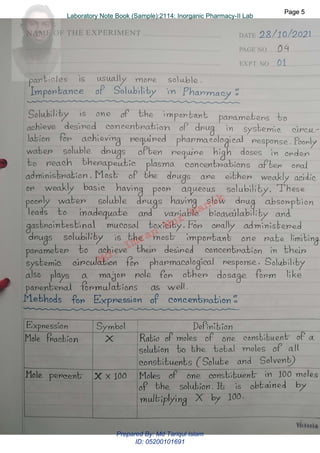 Page 5
Laboratory Note Book (Sample):2114: Inorganic Pharmacy-II Lab
NAME OF THE EXPERIMENT
DATE 28/10/2021
PAGE NO. 04
EXPT NO. 01
particles is usually more soluble.
Importance of Solubility in Pharmacy :
Solubility is one of the important parameters to
achieve desired concentration of drug in systemic circu-
lation for achieving required pharmacological response. Poorly
water soluble drugs often require high doses in order
to reach therapeutic plasma concentrations after oral
administration. Most of the drugs are either weakly acidic
or weakly basic having poor aqueous solubility. These
poorly water soluble drugs having slow drug absorption
leads to inadequate and variable bioavailability and
gastrointestinal mucosal toxicity. For orally administered
drugs solubility is the most important one rate limiting
parameter to achieve their desired concentration in their
systemic circulation for pharmacological response. Solubility
also plays a major role for other dosage form like
parenteral formulations as well.
Methods for Expression of concentration :
Expression Symbol Definition
Mole fraction X Ratio of moles of one constituent of a
solution to the total moles of all
constituents (Solute and Solvent)
Mole percent X x 100 Moles of one constituent in 100 moles
of the solution. Its is obtained by
multiplying X by 100.
Prepared By: Md Tariqul Islam
ID: 05200101691